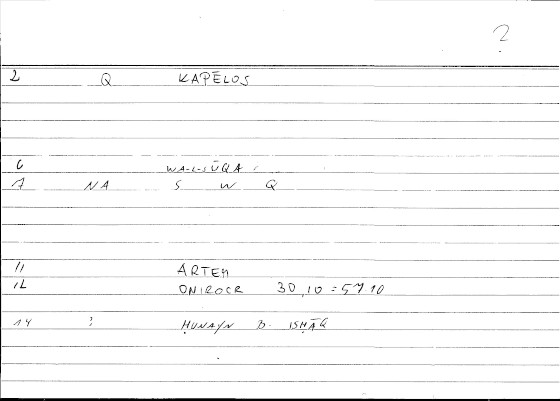 ?
2 Q KAPĒLOS
6 WA-L-SŪQA
7 NA S W Q
11 ARTEM
12 ONIROCR 30,10 = 57.10
14 ? ḤUNAYN B. ISḤĀQ